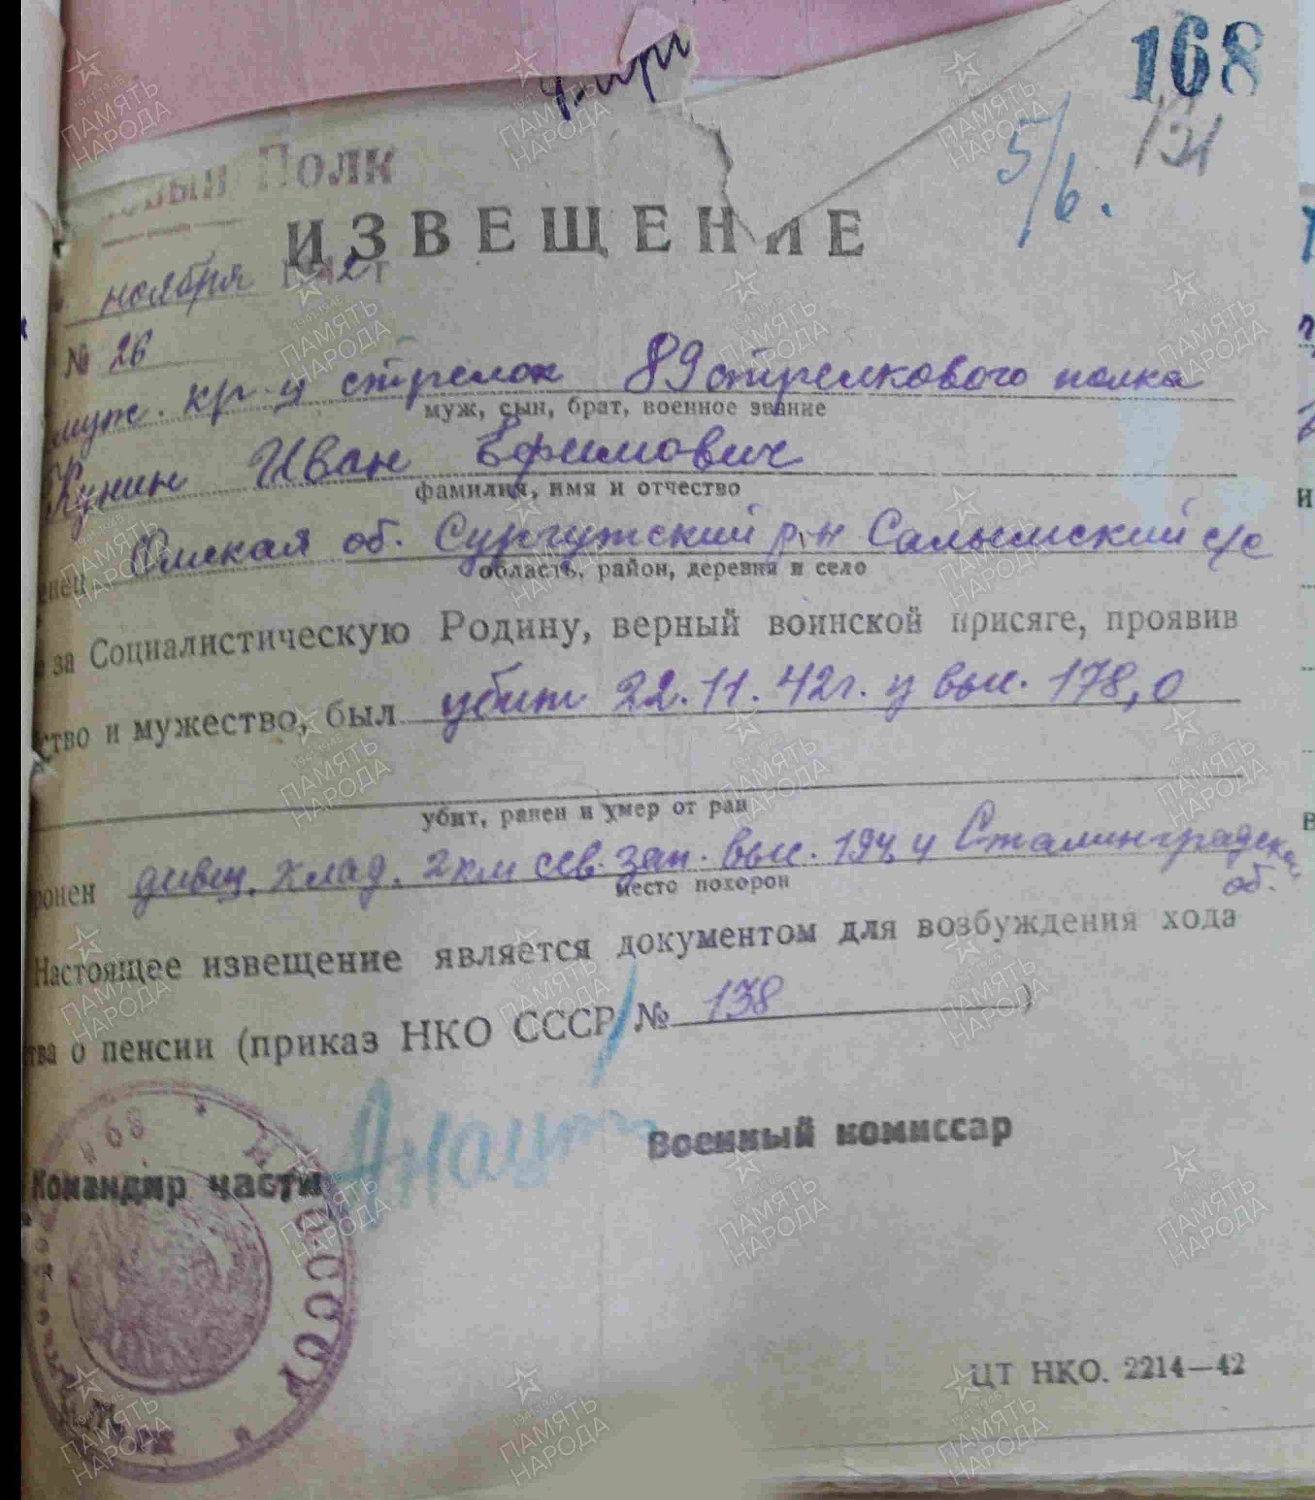 168
5/6.
131
Полк
ИЗВЕЩЕНИЕ
ноября
№ 26
муж. кр-ц стрелок 89 стрелкового полка
муж, сын, брат, военное звание
Кунин Иван Ефимович
фамилия, имя и отчество
енец Омская об. Сургутский р-н Салымский с/с
область, район, деревня и село
за Социалистическую Родину, верный воинской присяге, проявив
ство и мужество, был убит 22.11.42г. у выс. 178,0
убит, ранен и умер от ран
ронен дивиз. клад. 2 км сев. зап. выс. Сталинградска
место похорон
об.
Настоящее извещение является документом для возбуждения хода
тва о пенсии (приказ НКО СССР № 138 )
Военный комиссар
Командир части
468 НКО СССР
ЦТ НКО. 2214—42